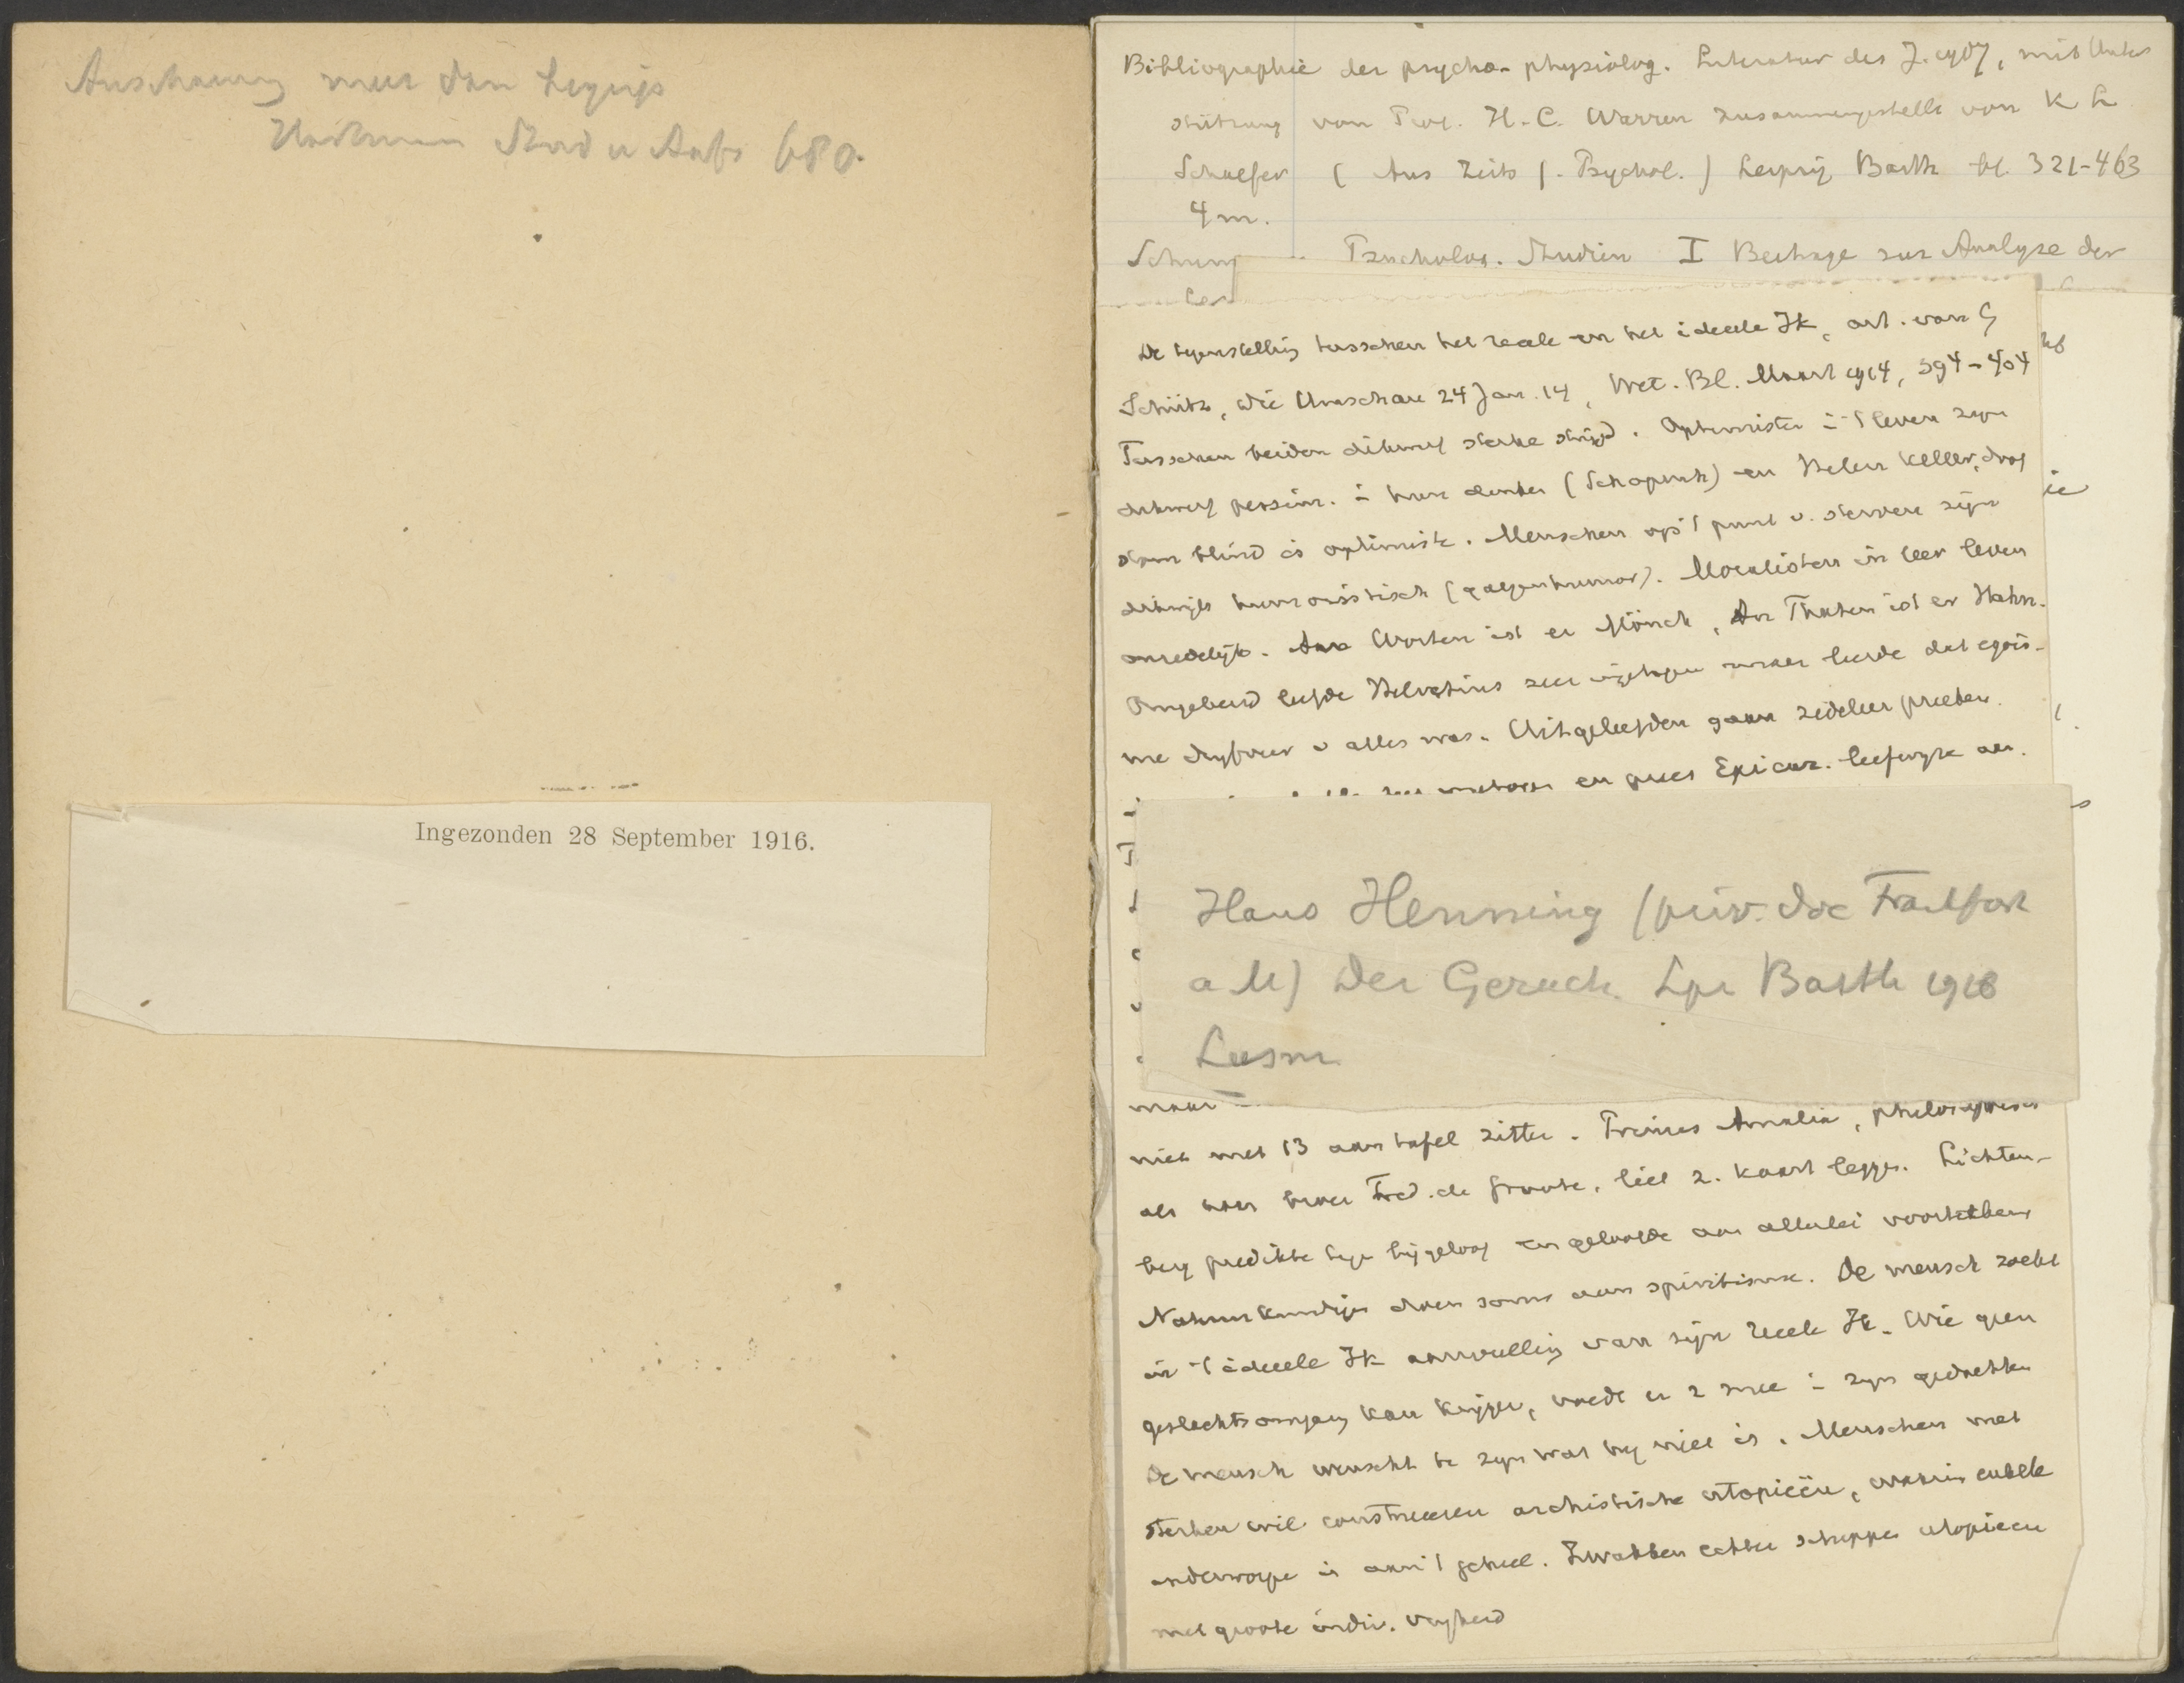 Anschauung meer dan begrip
Stud u Aufs 680.
Ingezonden 28 September 1916.
Bibliographie der psycho-physiolog. Literatur des J. 1907, mit Unter
stützung von Prof. H.C. Warren zusammengestellt von K L
Schaefer (Aus Zeits f. Psychol.) Leipzig Barth bl. 321-463
4 m.
Psycholog. Studien I Beitrage zur Analyse der
De tegenstelling tusschen het reale en het ideele Ik, art. van G
Schütz, Die Umschau 24 Jan. 14, Wet. Bl. Maart 1914, 394-404
Tusschen beiden dikwijl sterke strijd. Optimisten i 't leven zijn
dikwijl pessim. i hun denken (Schopenh) en Helen Keller, doof
stom blind is optimiste. Menschen op 't punt v. sterven zijn
dikwijls humoristisch (galgenhumor). Moralisten in leer leven
onzedelijk. An Worten ist er Mönch, An Thaten ist er Hahn.
Omgekeerd leefde Helvetius zeer maar leerde dat egois-
me drijfveer v alles was. Uitgeleefden gaan zedeleer preeken.
en prees Epicur. leefwijze aan.
Hans Henning (priv. doc Frankfort
a M) Der Geruch. Lpz Barth 1916
Leesm.
maar
niet met 13 aan tafel zitten. Prinses Amalia, philosophisch
als haar broer Fred. de Groote, liet z. kaart leggen. Lichten-
berg predikte tegen bijgeloof en geloofde aan allerlei voorteekens
Natuurkundigen doen soms aan spiritisme. De mensch zoekt
in 't ideeele Ik aanvulling van zijn reeele Ik. Wie geen
geslachtsomgang kan krijgen, voedt er z mee i zijn gedachten
De mensch wenscht te zijn wat hij niet is. Menschen met
sterken wil construeeren archistische utopieën, waarin enkele
onderworpe is aan 't geheel. Zwakken echter scheppen utopieen
met groote indiv. vrijheid